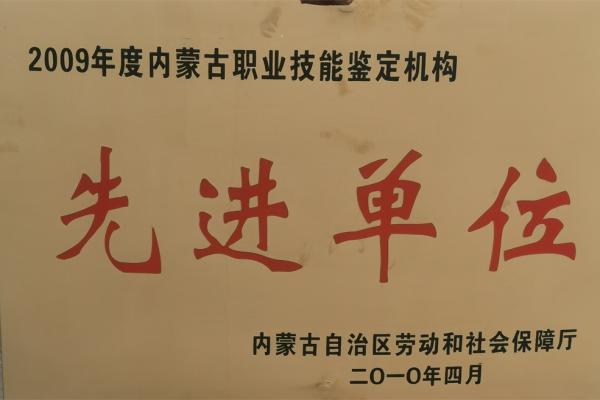 2009年度内蒙古职业技能鉴定机构
先进单位
内蒙古自治区劳动和社会保障厅
二〇一〇年四月